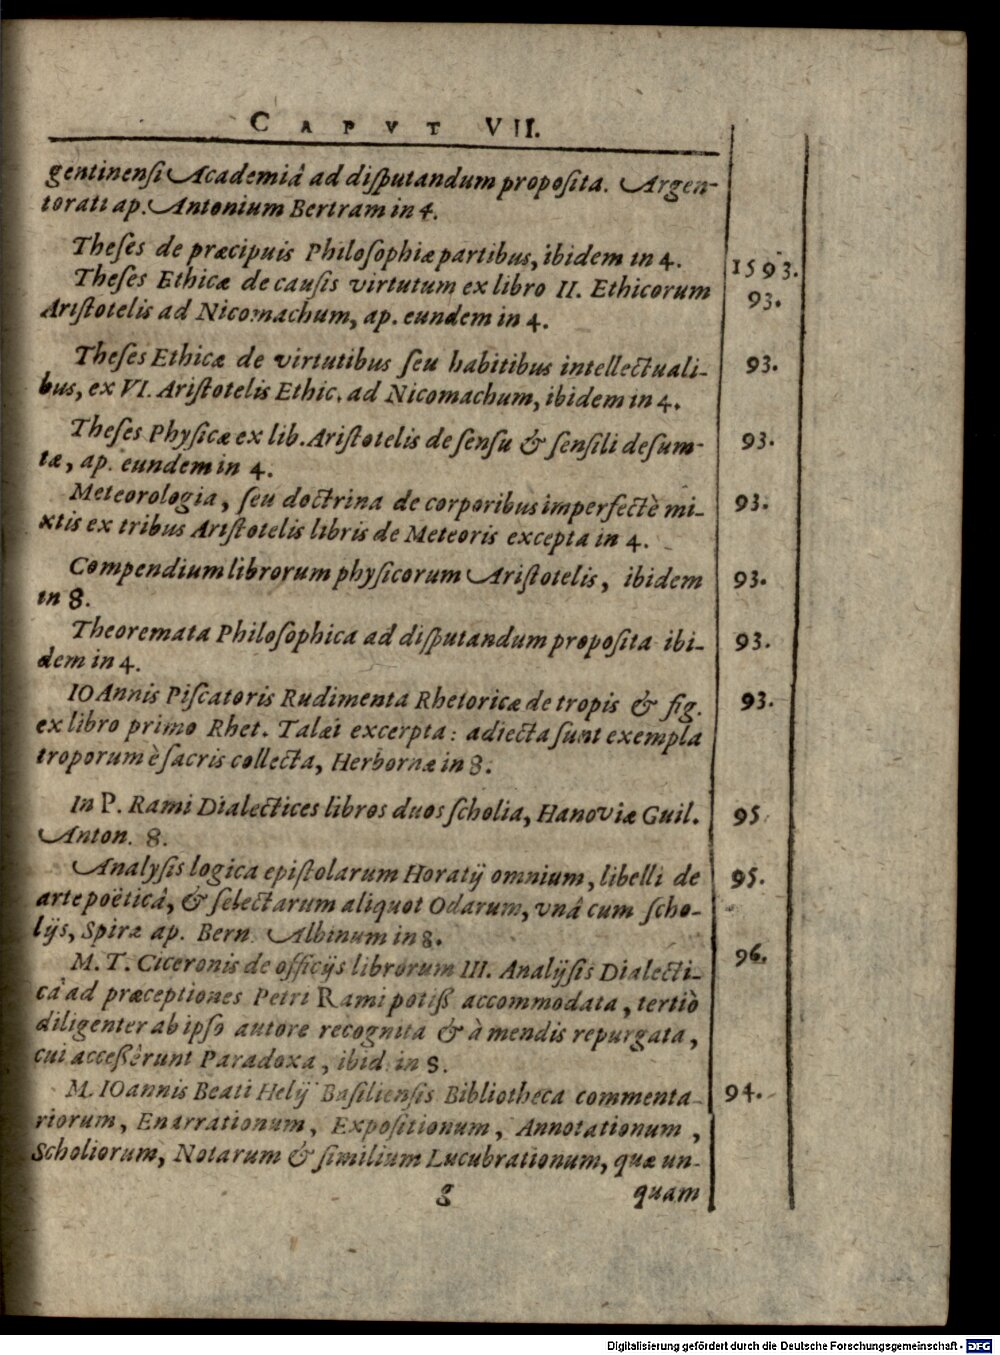 CAPVT VII.
gentinensi Academiâ ad disputandum proposita. Argen-
torati ap. Antonium Bertram in 4.
Theses de præcipuis Philosophiæ partibus, ibidem in 4. 1593.
Theses Ethicæ de causis virtutum ex libro II. Ethicorum 93.
Aristotelis ad Nicomachum, ap. eundem in 4.
Theses Ethicæ de virtutibus seu habitibus intellectuali- 93.
bus, ex VI. Aristotelis Ethic. ad Nicomachum, ibidem in 4.
Theses Physicæ ex lib. Aristotelis de sensu & sensili desum- 93.
tæ, ap. eundem in 4.
Meteorologia, seu doctrina de corporibus imperfectè mi- 93.
xtis ex tribus Aristotelis libris de Meteoris excepta in 4.
Compendium librorum physicorum Aristotelis, ibidem 93.
in 8.
Theoremata Philosophica ad disputandum proposita ibi- 93.
dem in 4.
IOAnnis Piscatoris Rudimenta Rhetoricæ de tropis & fig. 93.
ex libro primo Rhet. Talæi excerpta: adiecta sunt exempla
troporum è sacris collecta, Herbornæ in 8.
In P. Rami Dialectices libros duos scholia, Hanoviæ Guil. 95.
Anton. 8.
Analysis logica epistolarum Horatij omnium, libelli de 95.
arte poëticâ, & selectarum aliquot Odarum, vnâ cum scho-
lijs, Spiræ ap. Bern. Albinum in 8.
M. T. Ciceronis de officijs librorum III. Analysis Dialecti- 96.
câ ad præceptiones Petri Rami potiß accommodata, tertiò
diligenter ab ipso autore recognita & à mendis repurgata,
cui acceßêrunt Paradoxa, ibid. in 8.
M. IOannis Beati Helij Basiliensis Bibliotheca commenta- 94.
riorum, Enarrationum, Expositionum, Annotationum,
Scholiorum, Notarum & similium Lucubrationum, quæ un-
g quam
Digitalisierung gefördert durch die Deutsche Forschungsgemeinschaft - DFG